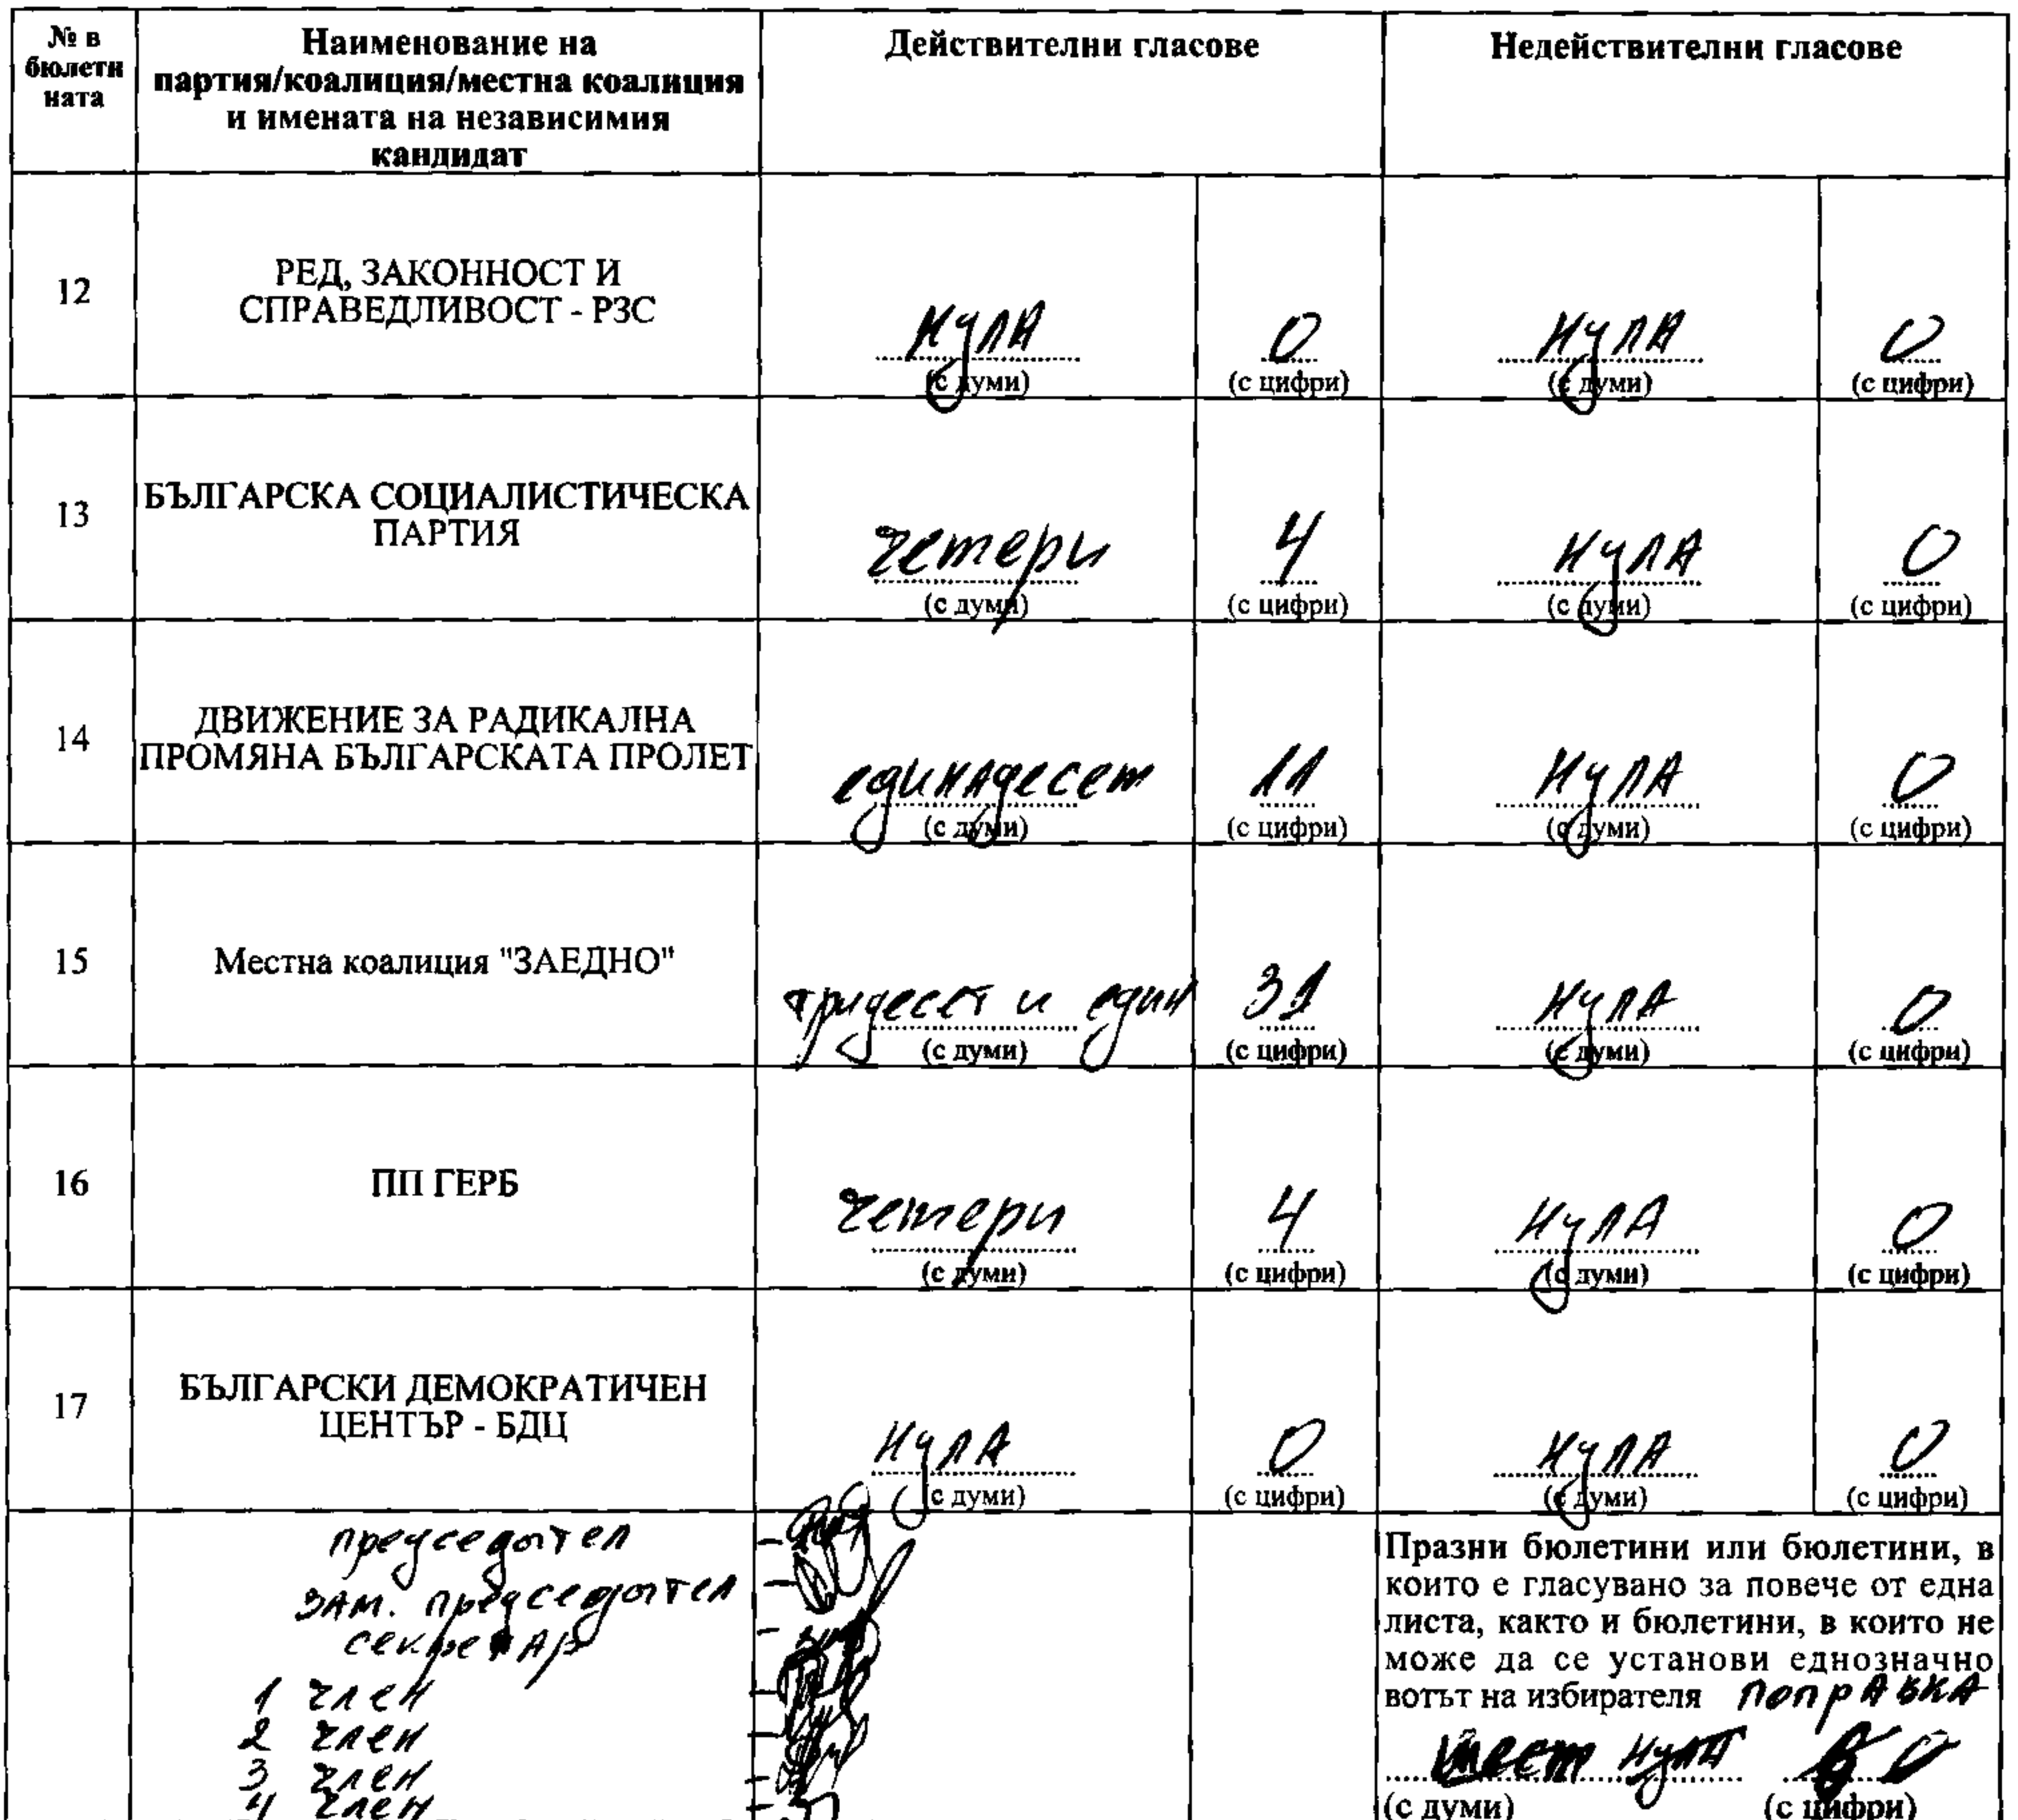 № в бюлетн ната
Наименование на партия/коалиция/местна коалиция и имената на независимия кандидат
Действителни гласове
Недействителни гласове
12
РЕД, ЗАКОННОСТ И
СПРАВЕДЛИВОСТ - РЗС
НУЛА 0 НУЛА 0
(с думи) (с цифри) (с думи) (с цифри)
13
БЪЛГАРСКА СОЦИАЛИСТИЧЕСКА
ПАРТИЯ
четери 4 НУЛА 0
(с думи) (с цифри) (с думи) (с цифри)
14
ДВИЖЕНИЕ ЗА РАДИКАЛНА
ПРОМЯНА БЪЛГАРСКАТА ПРОЛЕТ
единадесет 11 НУЛА 0
(с думи) (с цифри) (с думи) (с цифри)
15
Местна коалиция "ЗАЕДНО"
тридесет и един 31 НУЛА 0
(с думи) (с цифри) (с думи) (с цифри)
16
ПП ГЕРБ
четери 4 НУЛА 0
(с думи) (с цифри) (с думи) (с цифри)
17
БЪЛГАРСКИ ДЕМОКРАТИЧЕН
ЦЕНТЪР - БДЦ
НУЛА 0 НУЛА 0
(с думи) (с цифри) (с думи) (с цифри)
председател
ЗАМ. председател
секретАр
1 член
2 член
3 член
4 член
Празни бюлетини или бюлетини, в
които е гласувано за повече от една
листа, както и бюлетини, в които не
може да се установи еднозначно
вотът на избирателя попрАвкА
шест НУЛА 6 0
(с думи) (с цифри)